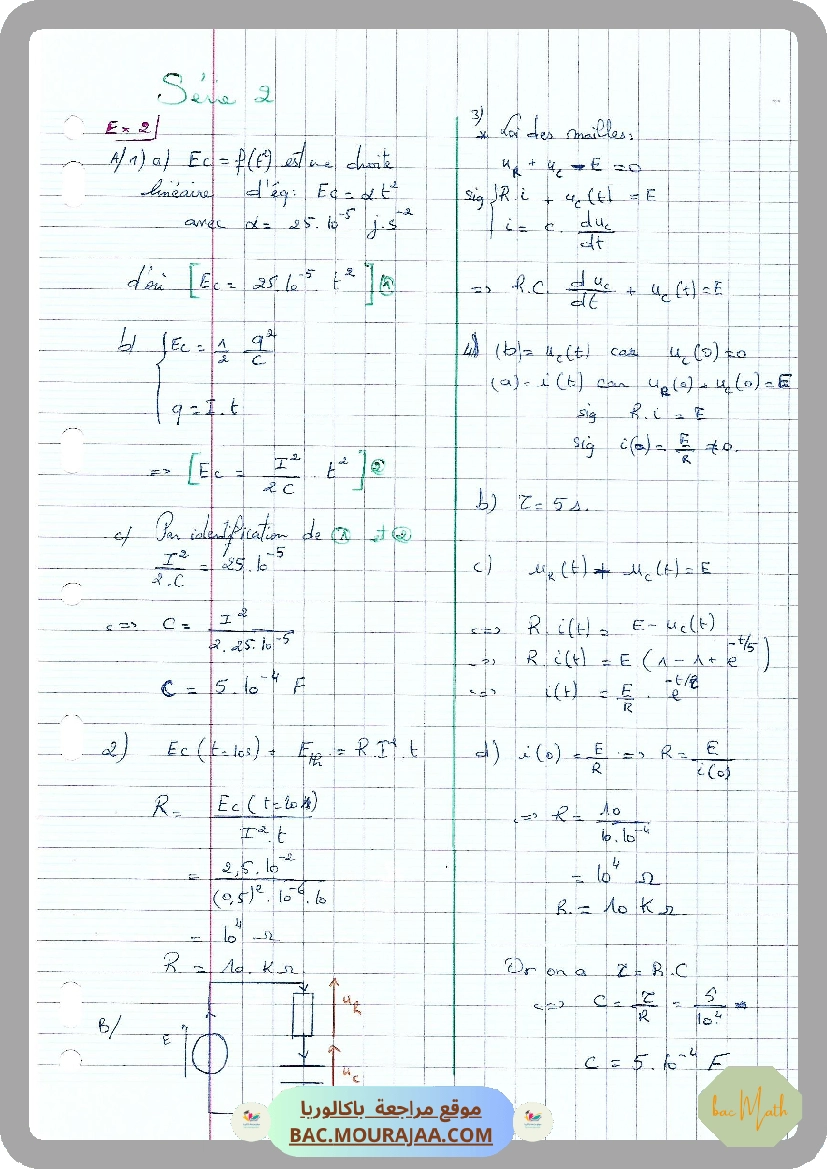 Série 2
Ex 2
A/ 1) a) Ec = f(t²) est une droite
linéaire d'éq: Ec = α t²
avec α = 25.10⁻⁵ j.s⁻²
d'où [Ec = 25.10⁻⁵ t²] ①
b) { Ec = 1/2 q²/C
q = I.t
=> [Ec = I²/2C . t²] ②
c) Par identification de ① et ②
I²/2.C = 25.10⁻⁵
<=> C = I²/2.25.10⁻⁵
C = 5.10⁻⁴ F
2) Ec(t=10s) = Eth = R.I².t
R = Ec(t=10s)/I².t
= 2,5.10⁻²/(0,5)².10⁻⁶.10
= 10⁴ Ω
R = 10.KΩ
B/
E
uR
uc
3)
* Loi des mailles:
uR + uc - E = 0
sig { R.i + uc(t) = E
i = c. duc/dt
=> R.C. duc/dt + uc(t) = E
4) (b) = uc(t) car uc(0) = 0
(a) = i(t) car uR(0) + uc(0) = E
sig R.i = E
sig i(0) = E/R ≠ 0.
b) τ = 5 s.
c) uR(t) + uc(t) = E
<=> R.i(t) = E - uc(t)
<=> R.i(t) = E (1 - 1 + e^(-t/5))
<=> i(t) = E/R . e^(-t/τ)
d) i(0) = E/R => R = E/i(0)
<=> R = 10/10.10⁻⁴
= 10⁴ Ω
R = 10 KΩ
Or on a τ = R.C
<=> C = τ/R = 5/10⁴
C = 5.10⁻⁴ F
موقع مراجعة باكالوريا
BAC.MOURAJAA.COM
bac Math